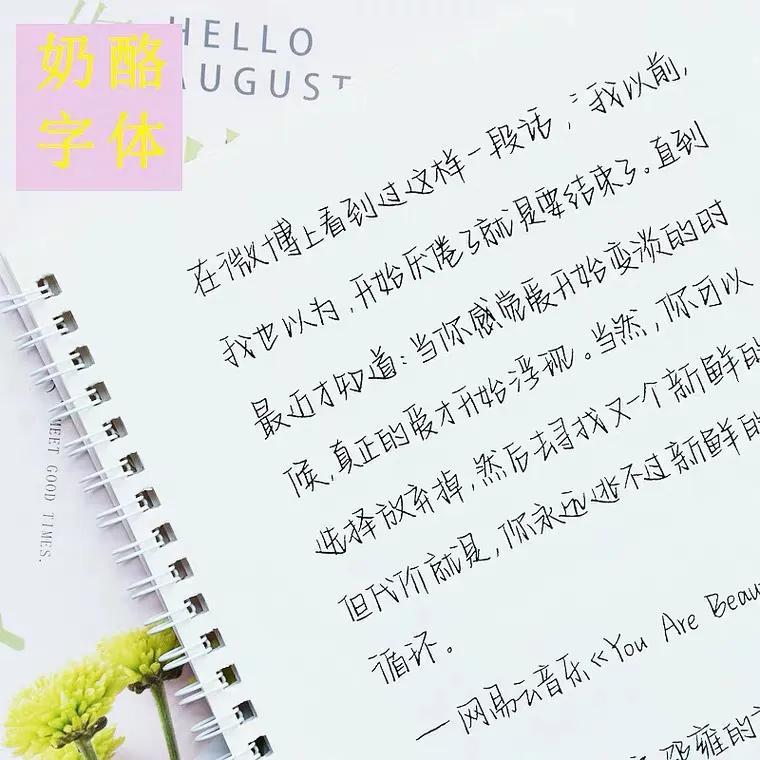 奶酪
字体
HELLO
AUGUST
在微博上看到过这样一段话，：我以前，
我也以为，开始厌倦了就是要结束了。直到
最近才知道：当你感觉爱开始变淡的时
候，真正的爱才开始浮现。当然，你可以
选择放弃掉，然后去寻找又一个新鲜的
但代价就是，你永远逃不过新鲜的
循环。
一网易云音乐《You Are Beau
邵雍的
MEET GOOD TIMES.